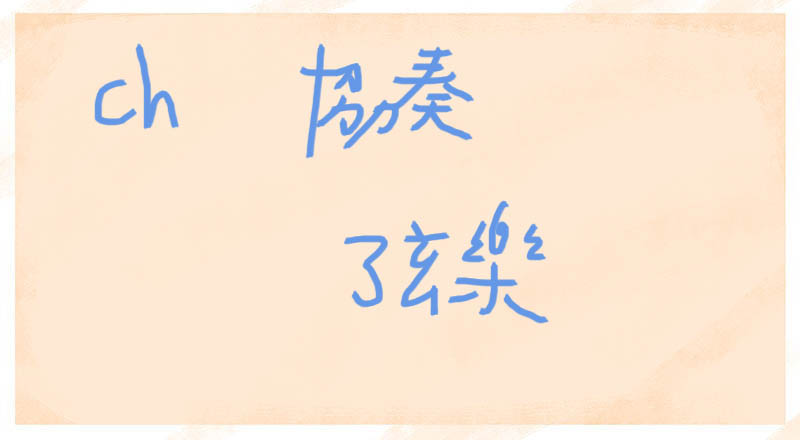 ch 協奏
弦樂